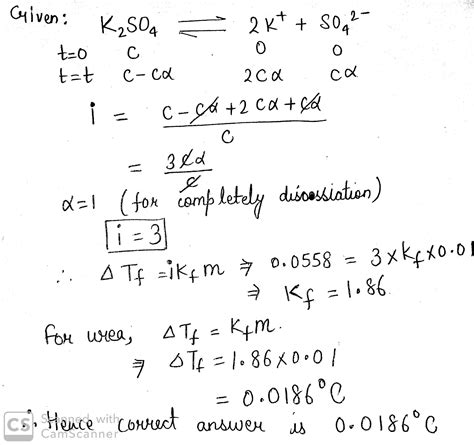 Given: K₂SO₄ ⇌ 2K⁺ + SO₄²⁻
t=0 C 0 0
t=t C-Cα 2Cα Cα
i = C-Cα+2Cα+Cα
C
= 3Cα
C
α=1 (for completely disossiation)
i = 3
∴ ΔTf = iKf m ⇒ 0.0558 = 3×Kf×0.01
⇒ Kf = 1.86
for urea, ΔTf = Kfm.
⇒ ΔTf = 1.86×0.01
= 0.0186°C
∴ Hence correct answer is 0.0186°C
CS Scanned with
CamScanner